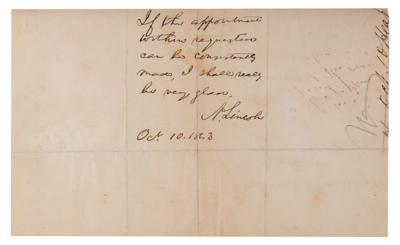 If the appointment
within requested
can be consistently
made, I shall really
be very glad.
A. Lincoln
Oct. 10. 1863